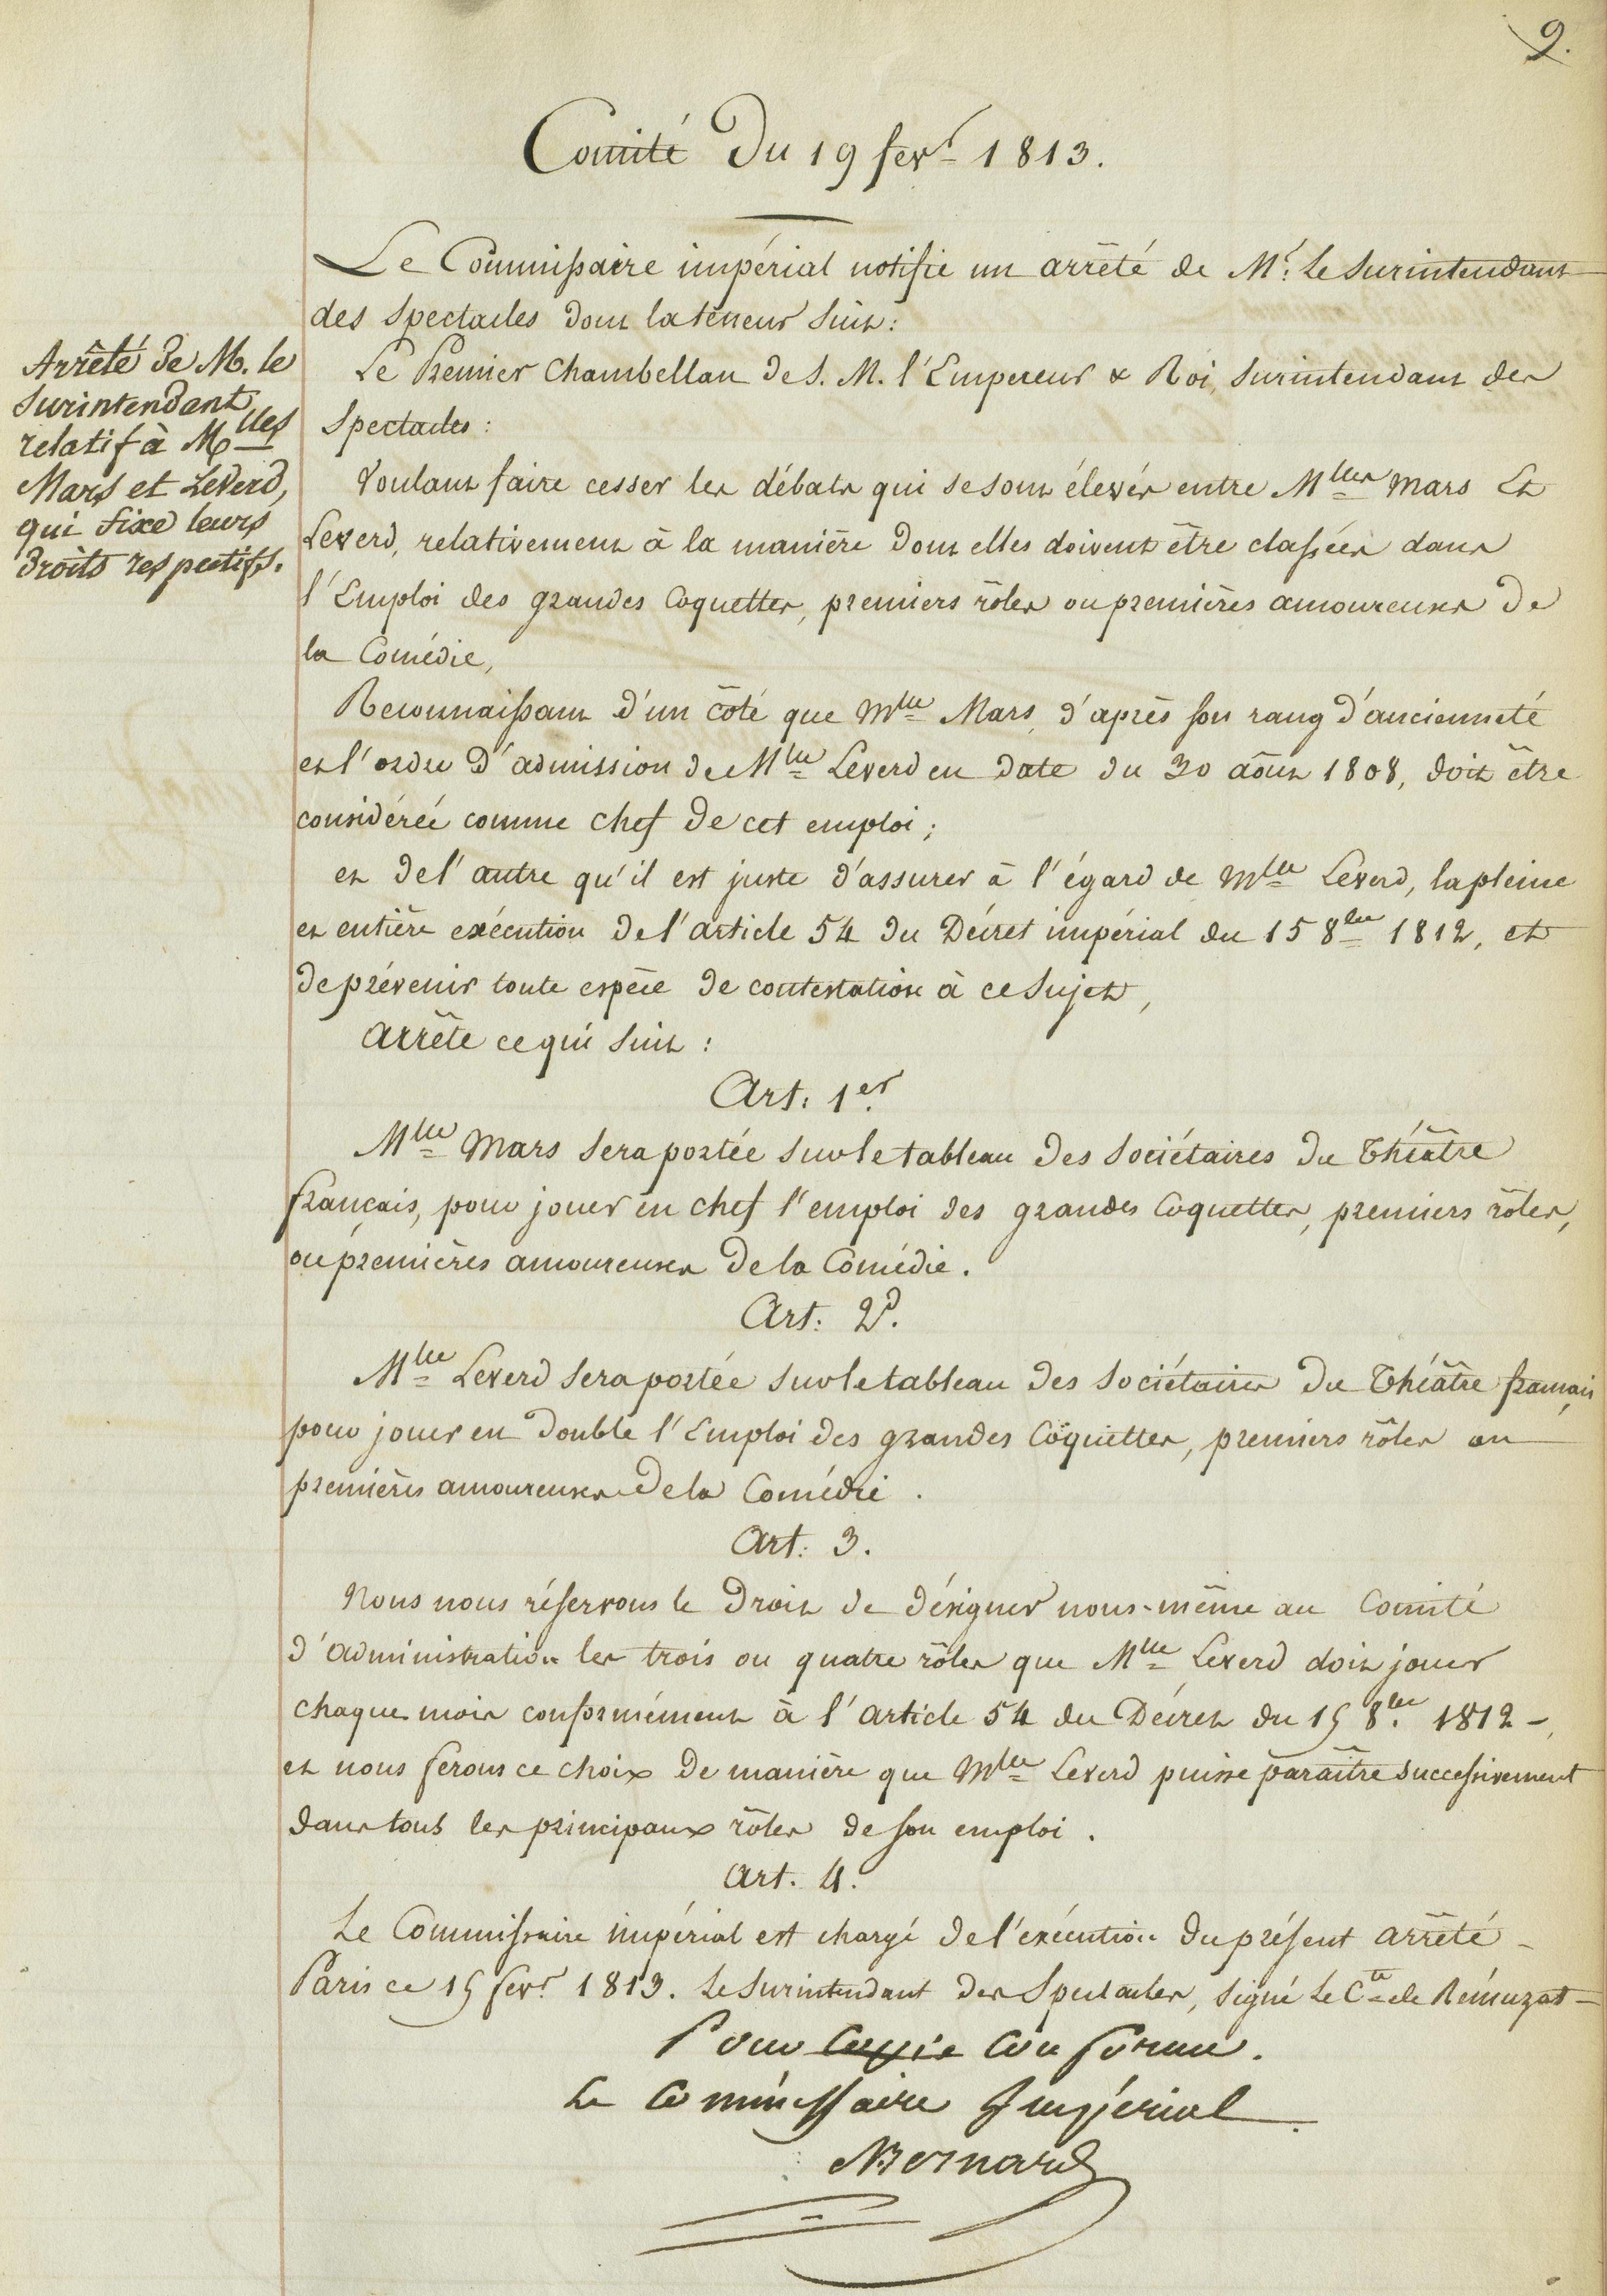 9.
Comité Du 19 fevr. 1813.
Le Commissaire impérial notifie un arrêté de Mr. le Surintendant
des Spectacles dont la teneur suit:
Arrêté de M. le
Surintendant
relatif à Mlles
Mars et Leverd,
qui fixe leurs
droits respectifs.
Le Premier Chambellan de S. M. l'Empereur & Roi, Surintendant des
Spectacles:
Voulant faire cesser les débats qui se sont élevés entre Mlles Mars Et
Leverd, relativement à la manière dont elles doivent être classées dans
l'Emploi des grandes Coquettes, premiers rôles ou premières amoureuses de
la Comédie,
Reconnaissant d'un côté que Mlle Mars, d'après son rang d'ancienneté
et l'ordre d'admission de Mlle Leverd en date du 30 août 1808, doit être
considérée comme chef de cet emploi;
et de l'autre qu'il est juste d'assurer à l'égard de Mlle Leverd, la pleine
et entière exécution de l'article 54 du Décret impérial du 15 8bre 1812, et
de prévenir toute espèce de contestation à ce sujet,
Arrête ce qui suit:
Art: 1er.
Mlle Mars sera portée sur le tableau des Sociétaires du Théâtre
français, pour jouer en chef l'emploi des grandes Coquettes, premiers rôles,
ou premières amoureuses de la Comédie.
Art: 2d.
Mlle Leverd sera portée sur le tableau des Sociétaires du Théâtre français
pour jouer en double l'Emploi des grandes Coquettes, premiers rôles ou
premières amoureuses de la Comédie.
Art: 3.
Nous nous réservons le Droit de désigner nous-même au Comité
d'administration les trois ou quatre rôles que Mlle Leverd doit jouer
chaque mois conformément à l'article 54 du Décret du 15 8bre. 1812 -
et nous ferons ce choix de manière que Mlle Leverd puisse paraître successivement
dans tous les principaux rôles de son emploi.
Art. 4.
Le Commissaire impérial est chargé de l'exécution du présent arrêté -
Paris ce 15 fevr. 1813. Le Surintendant des Spectacles, signé Le Cte de Rémuzat -
Pour Copie Conforme.
Le Commissaire Impérial
NBernard